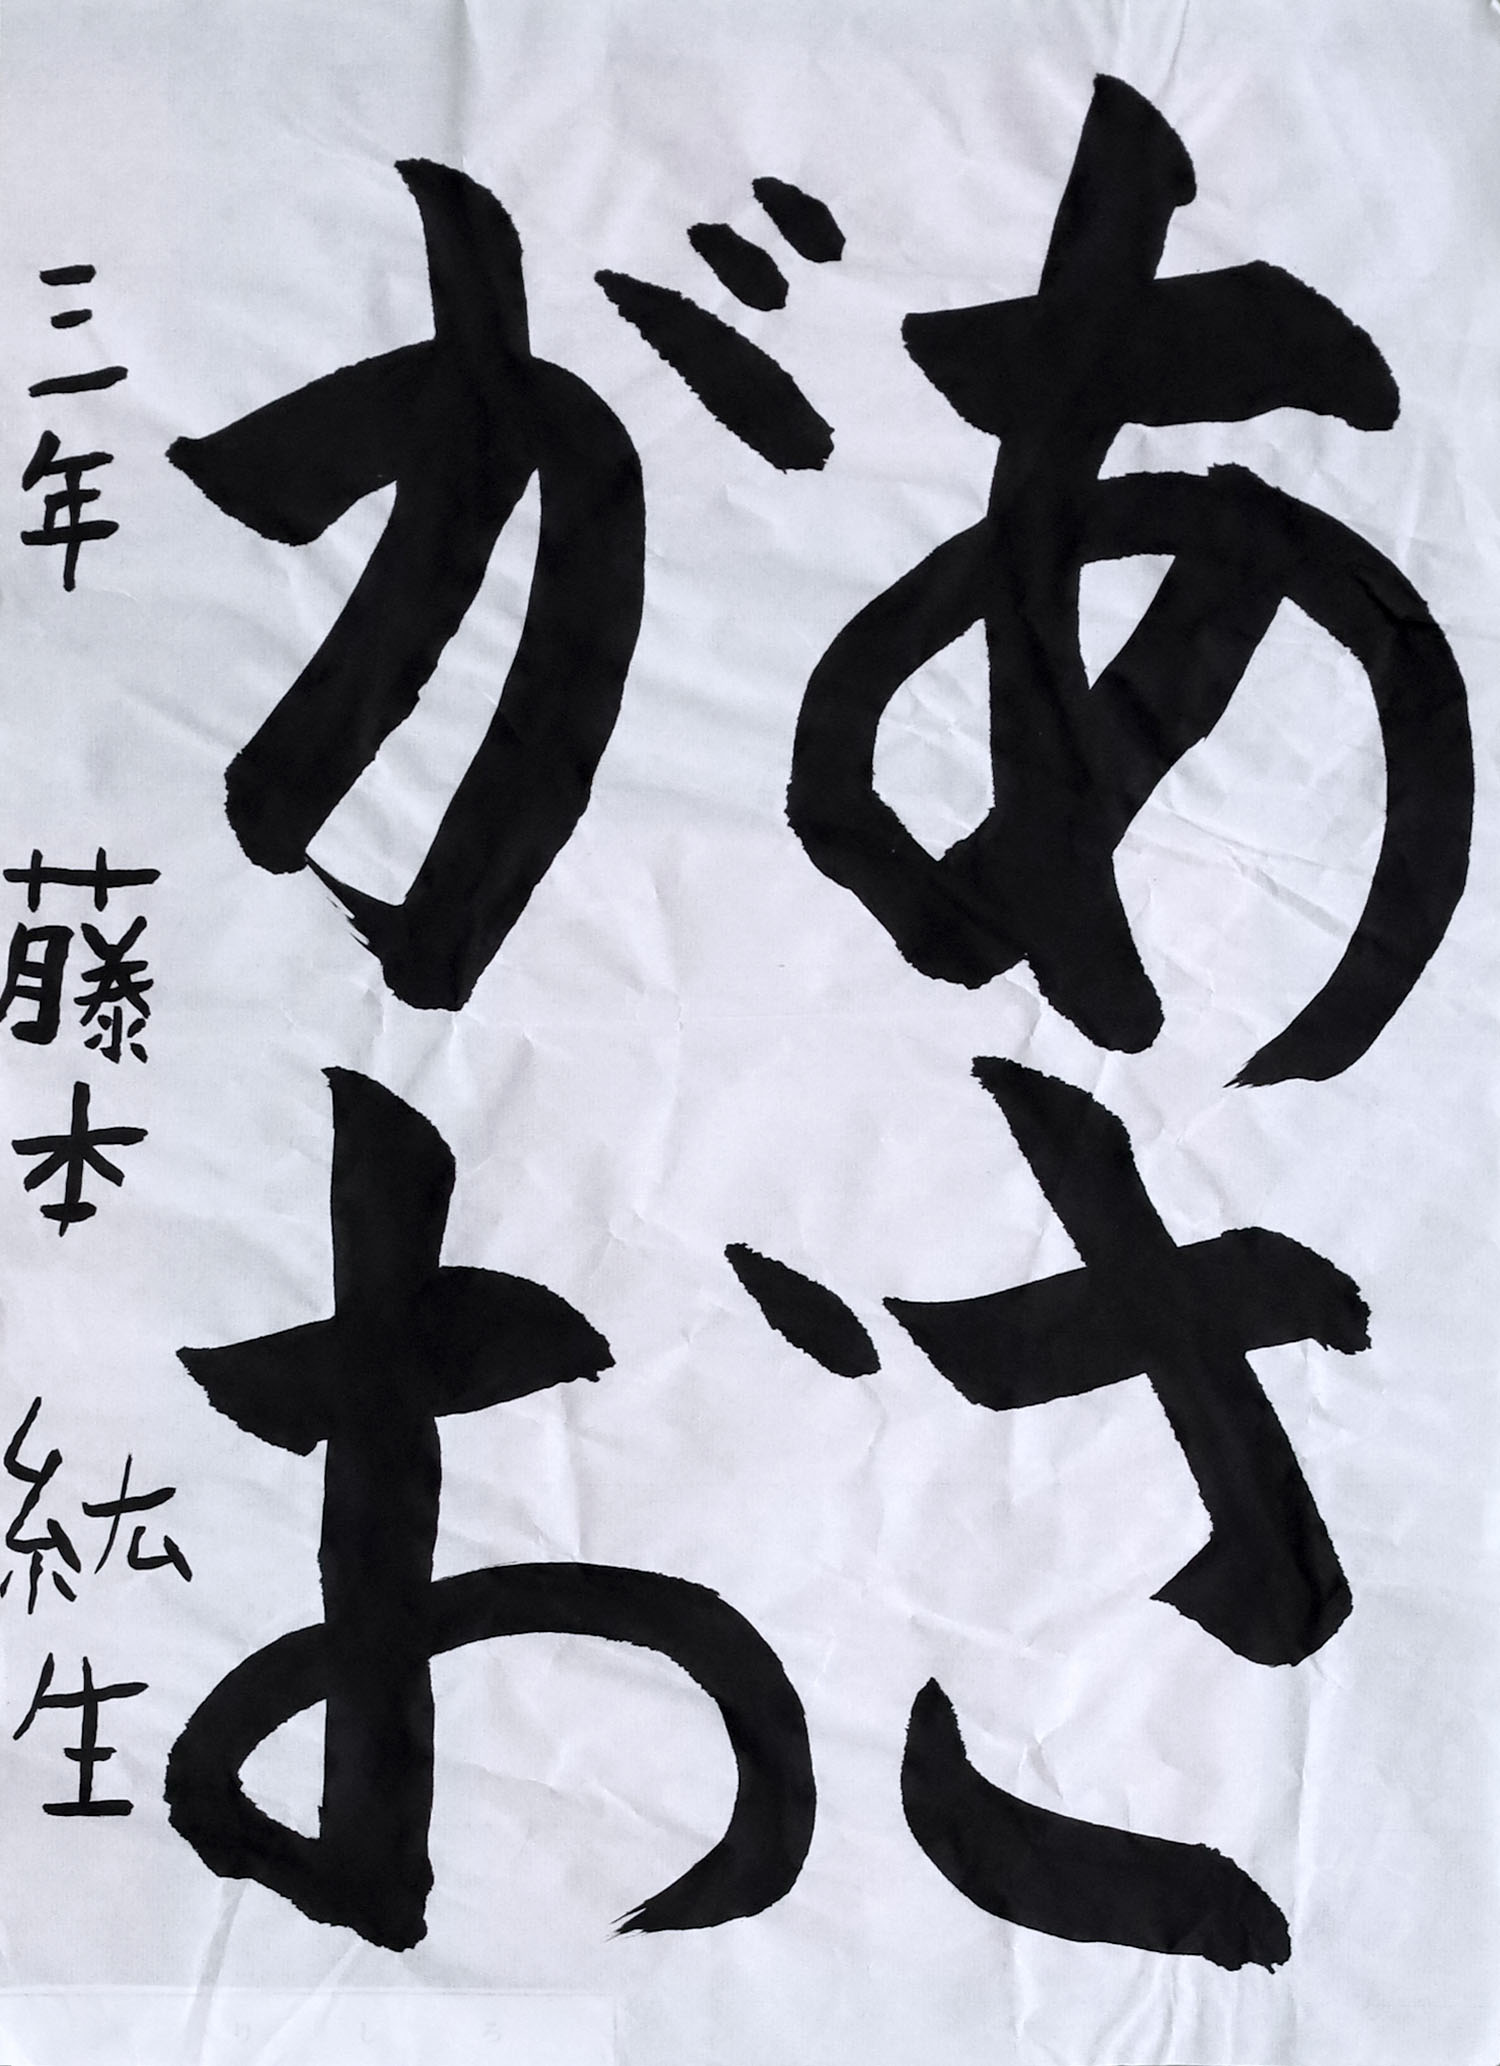 あさ
がお
三年 藤本 紘生